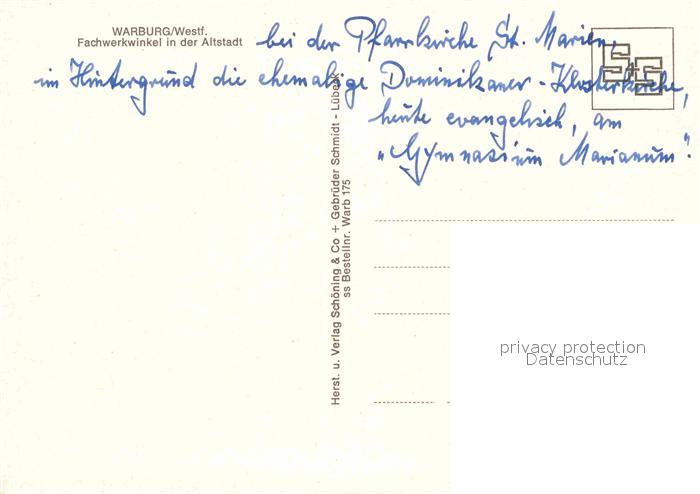 WARBURG/Westf.
Fachwerkwinkel in der Altstadt
bei der Pfarrkirche St. Marien,
im Hintergrund die ehemalige Dominikaner-Klosterkirche,
heute evangelisch, am
"Gymnasium Marianum".
S+S
Herst. u. Verlag Schöning & Co + Gebrüder Schmidt - Lübeck
ss Bestellnr. Warb 175
privacy protection
Datenschutz